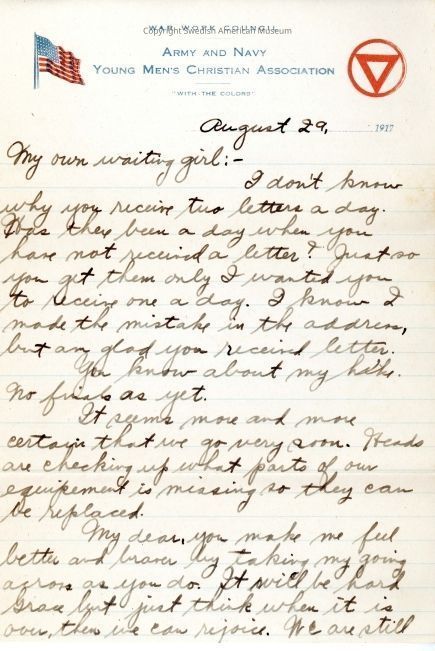 WAR WORK COUNCIL
Copyright Swedish American Museum
ARMY AND NAVY
YOUNG MEN'S CHRISTIAN ASSOCIATION
"WITH THE COLORS"
August 29, 1917
My own waiting girl:-
I don't know
why you receive two letters a day.
Has there been a day when you
have not received a letter? Just so
you get them only I wanted you
to receive one a day. I know I
made the mistake in the address,
but am glad you received letter.
You know about my hike.
No finals as yet.
It seems more and more
certain that we go very soon. Heads
are checking up what parts of our
equipement is missing so they can
be replaced.
My dear, you make me feel
better and braver by taking my going
across as you do. It will be hard
Grace but just think when it is
over, then we can rejoice. We are still